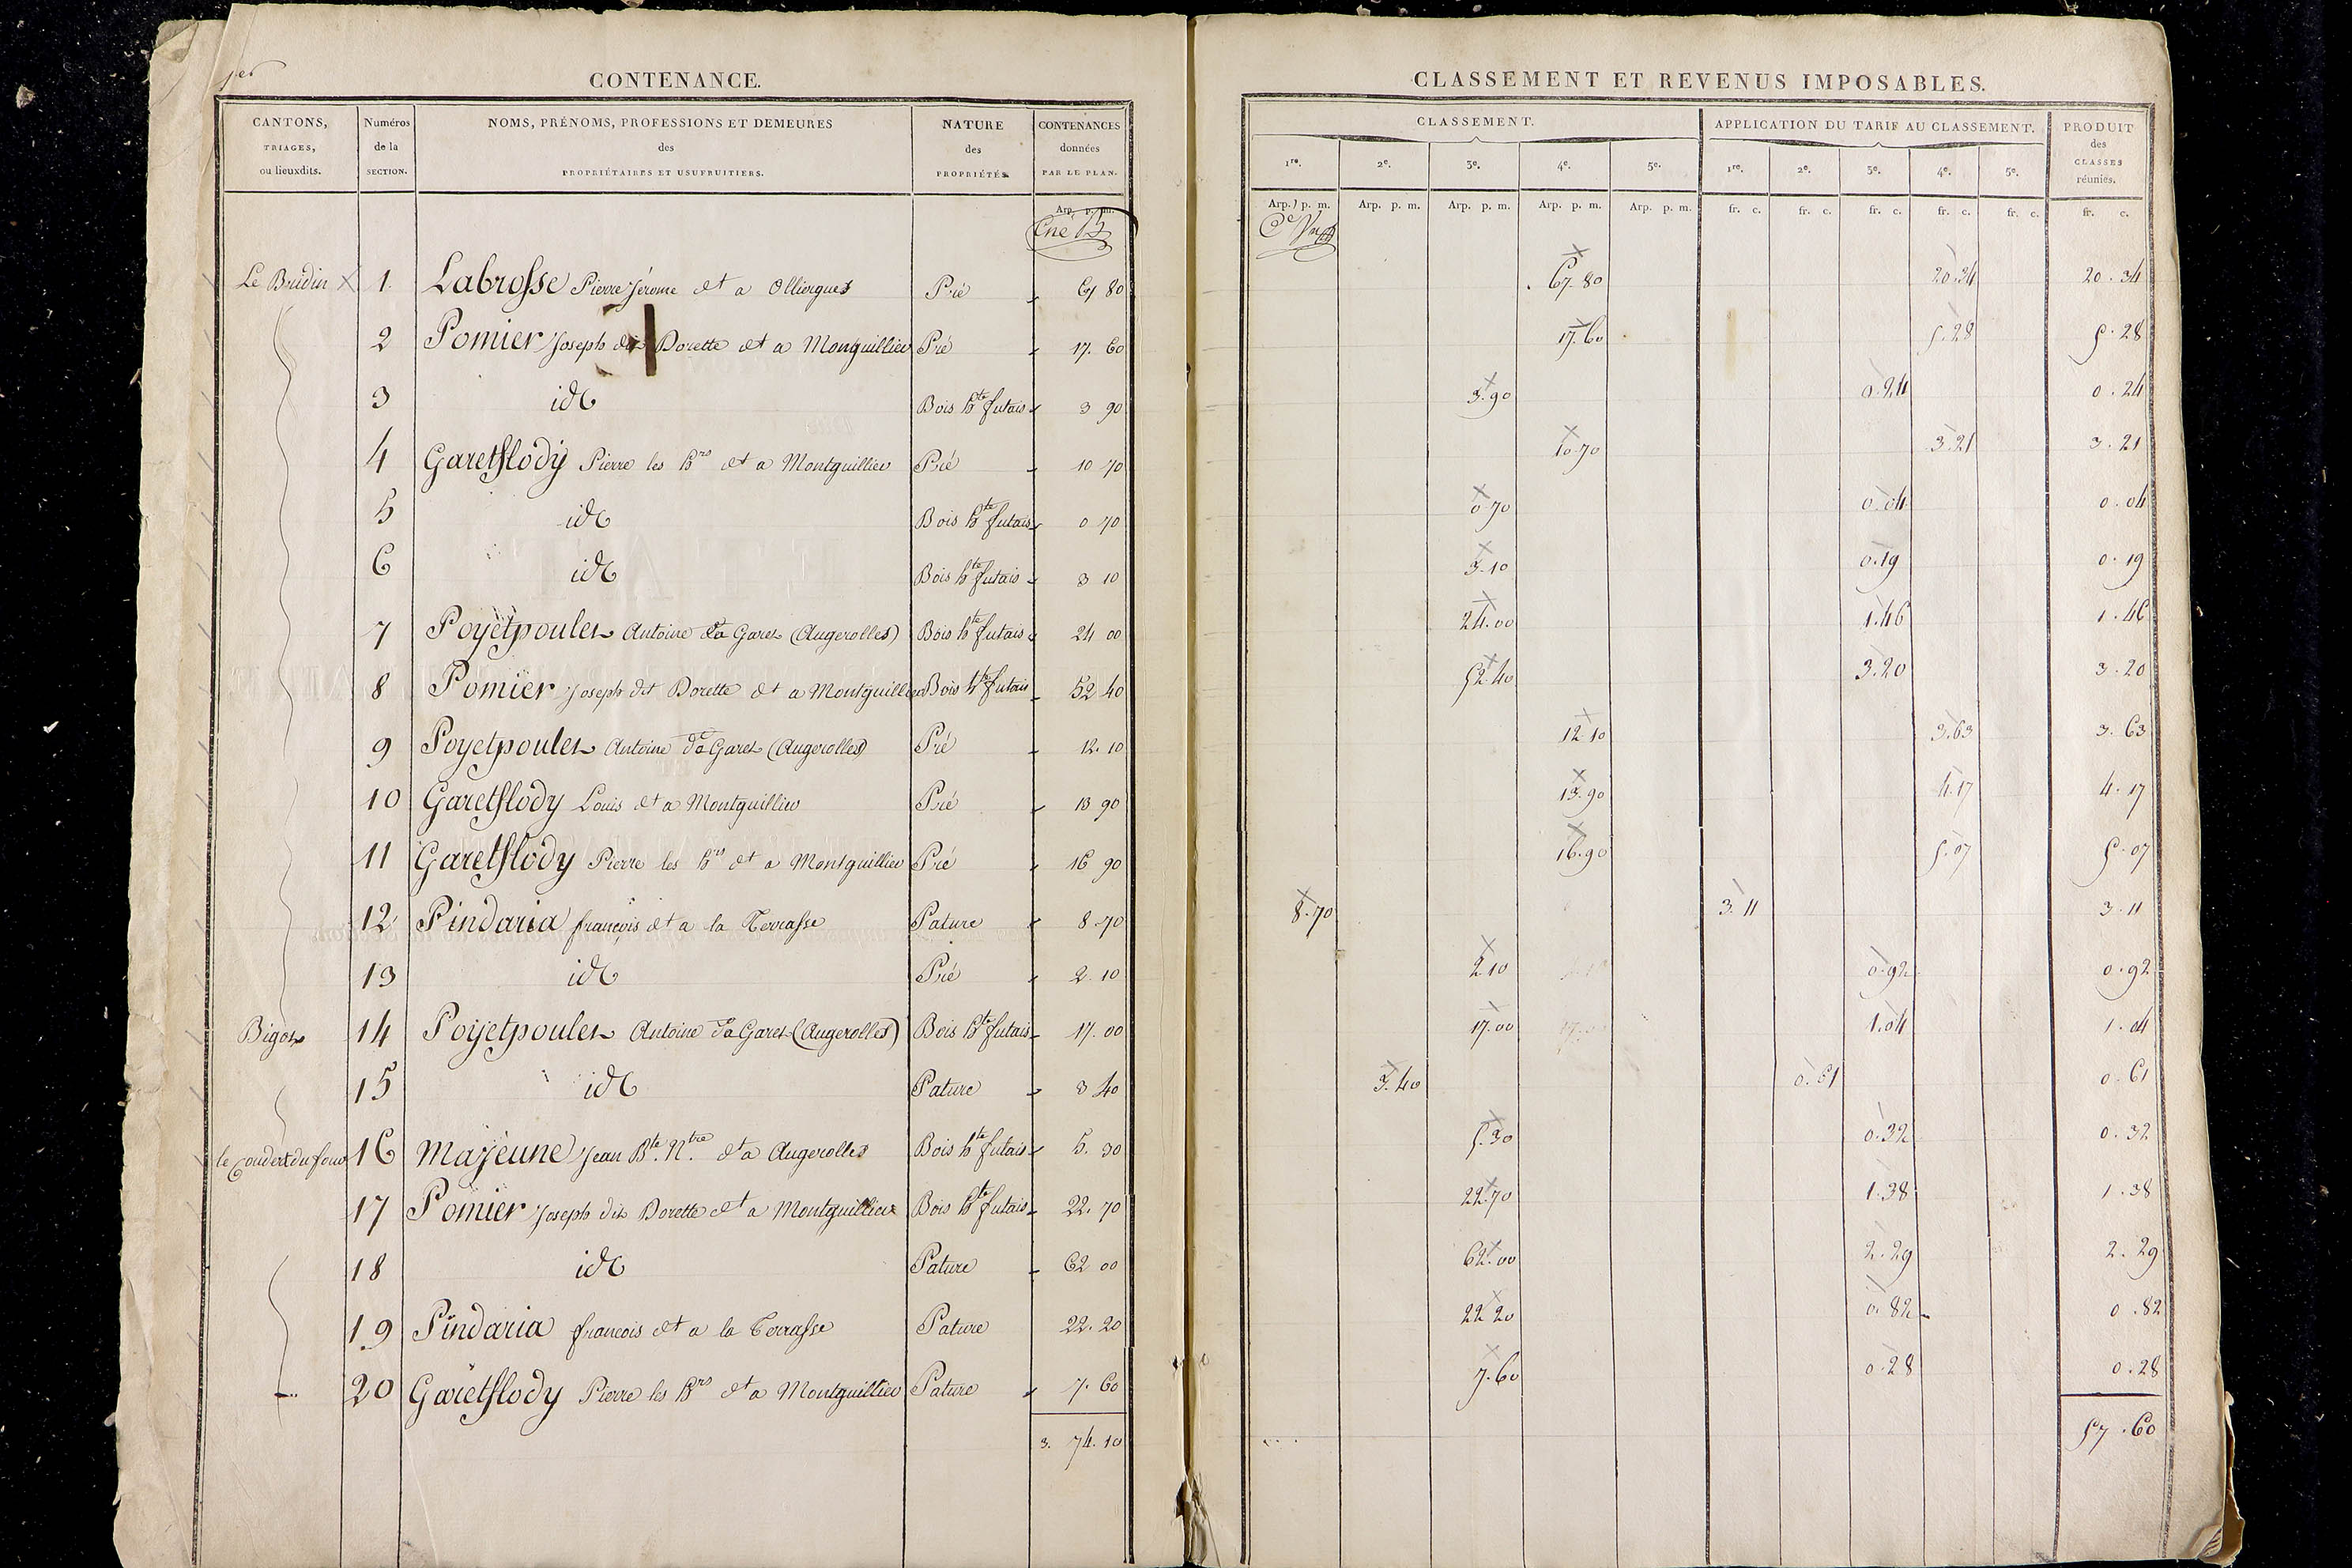 1er
CONTENANCE.
CANTONS, TRIAGES, ou lieuxdits. Numéros de la SECTION. NOMS, PRÉNOMS, PROFESSIONS ET DEMEURES des PROPRIÉTAIRES ET USUFRUITIERS. NATURE des PROPRIÉTÉS. CONTENANCES données PAR LE PLAN.
Arp. p. m.
Le Bridin 1 Labrosse Pierre Jérome dt a Olliergues Pré 67 80
2 Pomier Joseph dit Dorette dt a Montguillier Pré 17. 60
3 id Bois hte futais 3 90
4 Garetflody Pierre les hrs dt a Montguillier Pré 10 70
5 id Bois hte futais 0 70
6 id Bois hte futais 3 10
7 Poyetpoulet Antoine da Garet (Augerolles) Bois hte futais 24 00
8 Pomier Joseph dit Dorette dt a Montguillier Bois hte futais 52 40
9 Poyetpoulet Antoine da Garet (Augerolles) Pré 12. 10
10 Garetflody Louis dt a Montguillier Pré 13 90
11 Garetflody Pierre les hrs dt a Montguillier Pré 16 90
12 Pindaria françois dt a la Terrasse Pature 8. 70
13 id Pré 2. 10
Bigot 14 Poyetpoulet Antoine da Garet (Augerolles) Bois hte futais 17. 00
15 id Pature 3 40
le Coudert du four 16 Majeune Jean Bte. Ntre. dt a Augerolles Bois hte futais 5. 30
17 Pomier Joseph dit Dorette dt a Montguillier Bois hte futais 22. 70
18 id Pature 62 00
19 Pindaria francois dt a la Terrasse Pature 22. 20
20 Garetflody Pierre les hrs dt a Montguillier Pature 7. 60
3. 74. 10
CLASSEMENT ET REVENUS IMPOSABLES.
CLASSEMENT. APPLICATION DU TARIF AU CLASSEMENT. PRODUIT des CLASSES réunies.
1re. 2e. 3e. 4e. 5e. 1re. 2e. 3e. 4e. 5e.
Arp. p. m. Arp. p. m. Arp. p. m. Arp. p. m. Arp. p. m. fr. c. fr. c. fr. c. fr. c. fr. c. fr. c.
67.80 20.34 20.34
17.60 5.28 5.28
3.90 0.24 0.24
10.70 3.21 3.21
0.70 0.04 0.04
3.10 0.19 0.19
24.00 1.46 1.46
52.40 3.20 3.20
12.10 3.63 3.63
13.90 4.17 4.17
16.90 5.07 5.07
8.70 3.11 3.11
2.10 0.92 0.92
17.00 1.04 1.04
3.40 0.61 0.61
5.30 0.32 0.32
22.70 1.38 1.38
62.00 2.29 2.29
22.20 0.82 0.82
7.60 0.28 0.28
57.60